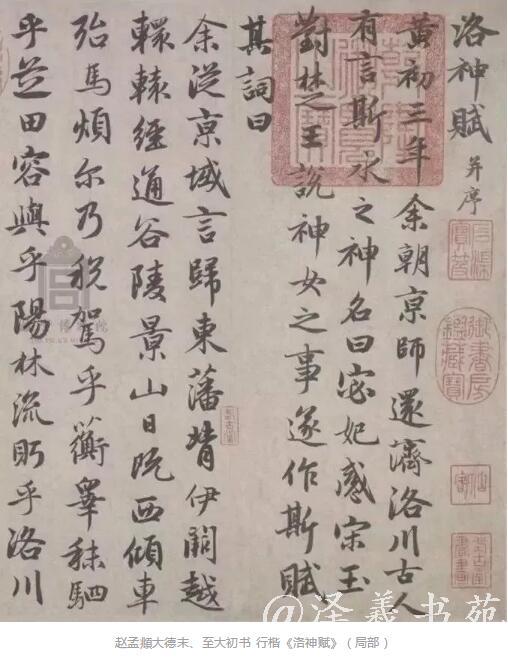 洛神賦 并序
黄初三年余朝京師還濟洛川古人
有言斯水之神名曰宓妃感宋玉
對楚之王說神女之事遂作斯賦
其詞曰
余從京域言歸東藩背伊闕越
轘轅經通谷陵景山日既西傾車
殆馬煩尔乃税駕乎蘅皋秣駟
乎芝田容與乎陽林流眄乎洛川
御書房鑑藏寶
@泽義书苑
赵孟頫大德末、至大初书 行楷《洛神赋》（局部）